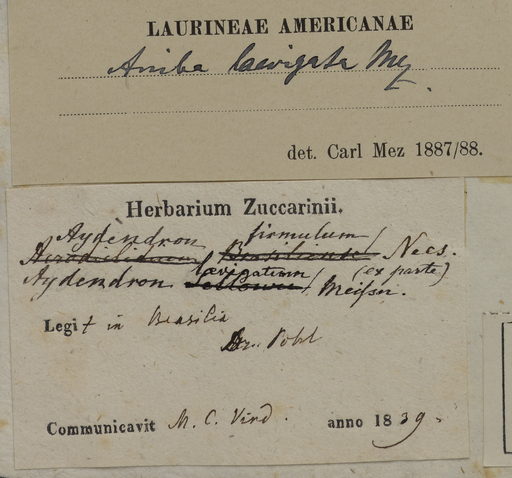 LAURINEAE AMERICANAE
Aniba laevigata Mez
det. Carl Mez 1887/88.
Herbarium Zuccarinii.
Aydendron firmulum
Brasiliense Nees.
laevigatum (ex parte)
Aydendron Sellowii Meissn.
Legit in Brasilia
Dr. Pohl
Communicavit M. C. Vind. anno 1839.